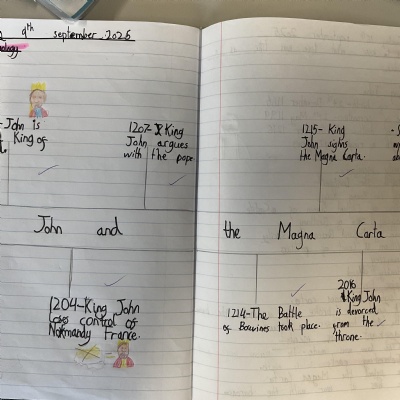 9th september 2025
-John is
King of
1207- King
John argues
with the pope.
1215- King
John sighns
the Magna Carta.
John and
the Magna Carta
1204-King John
loses control of
Normandy France.
1214-The Battle
of Bouvines took place.
2016
King John
is devorced
from the
throne.